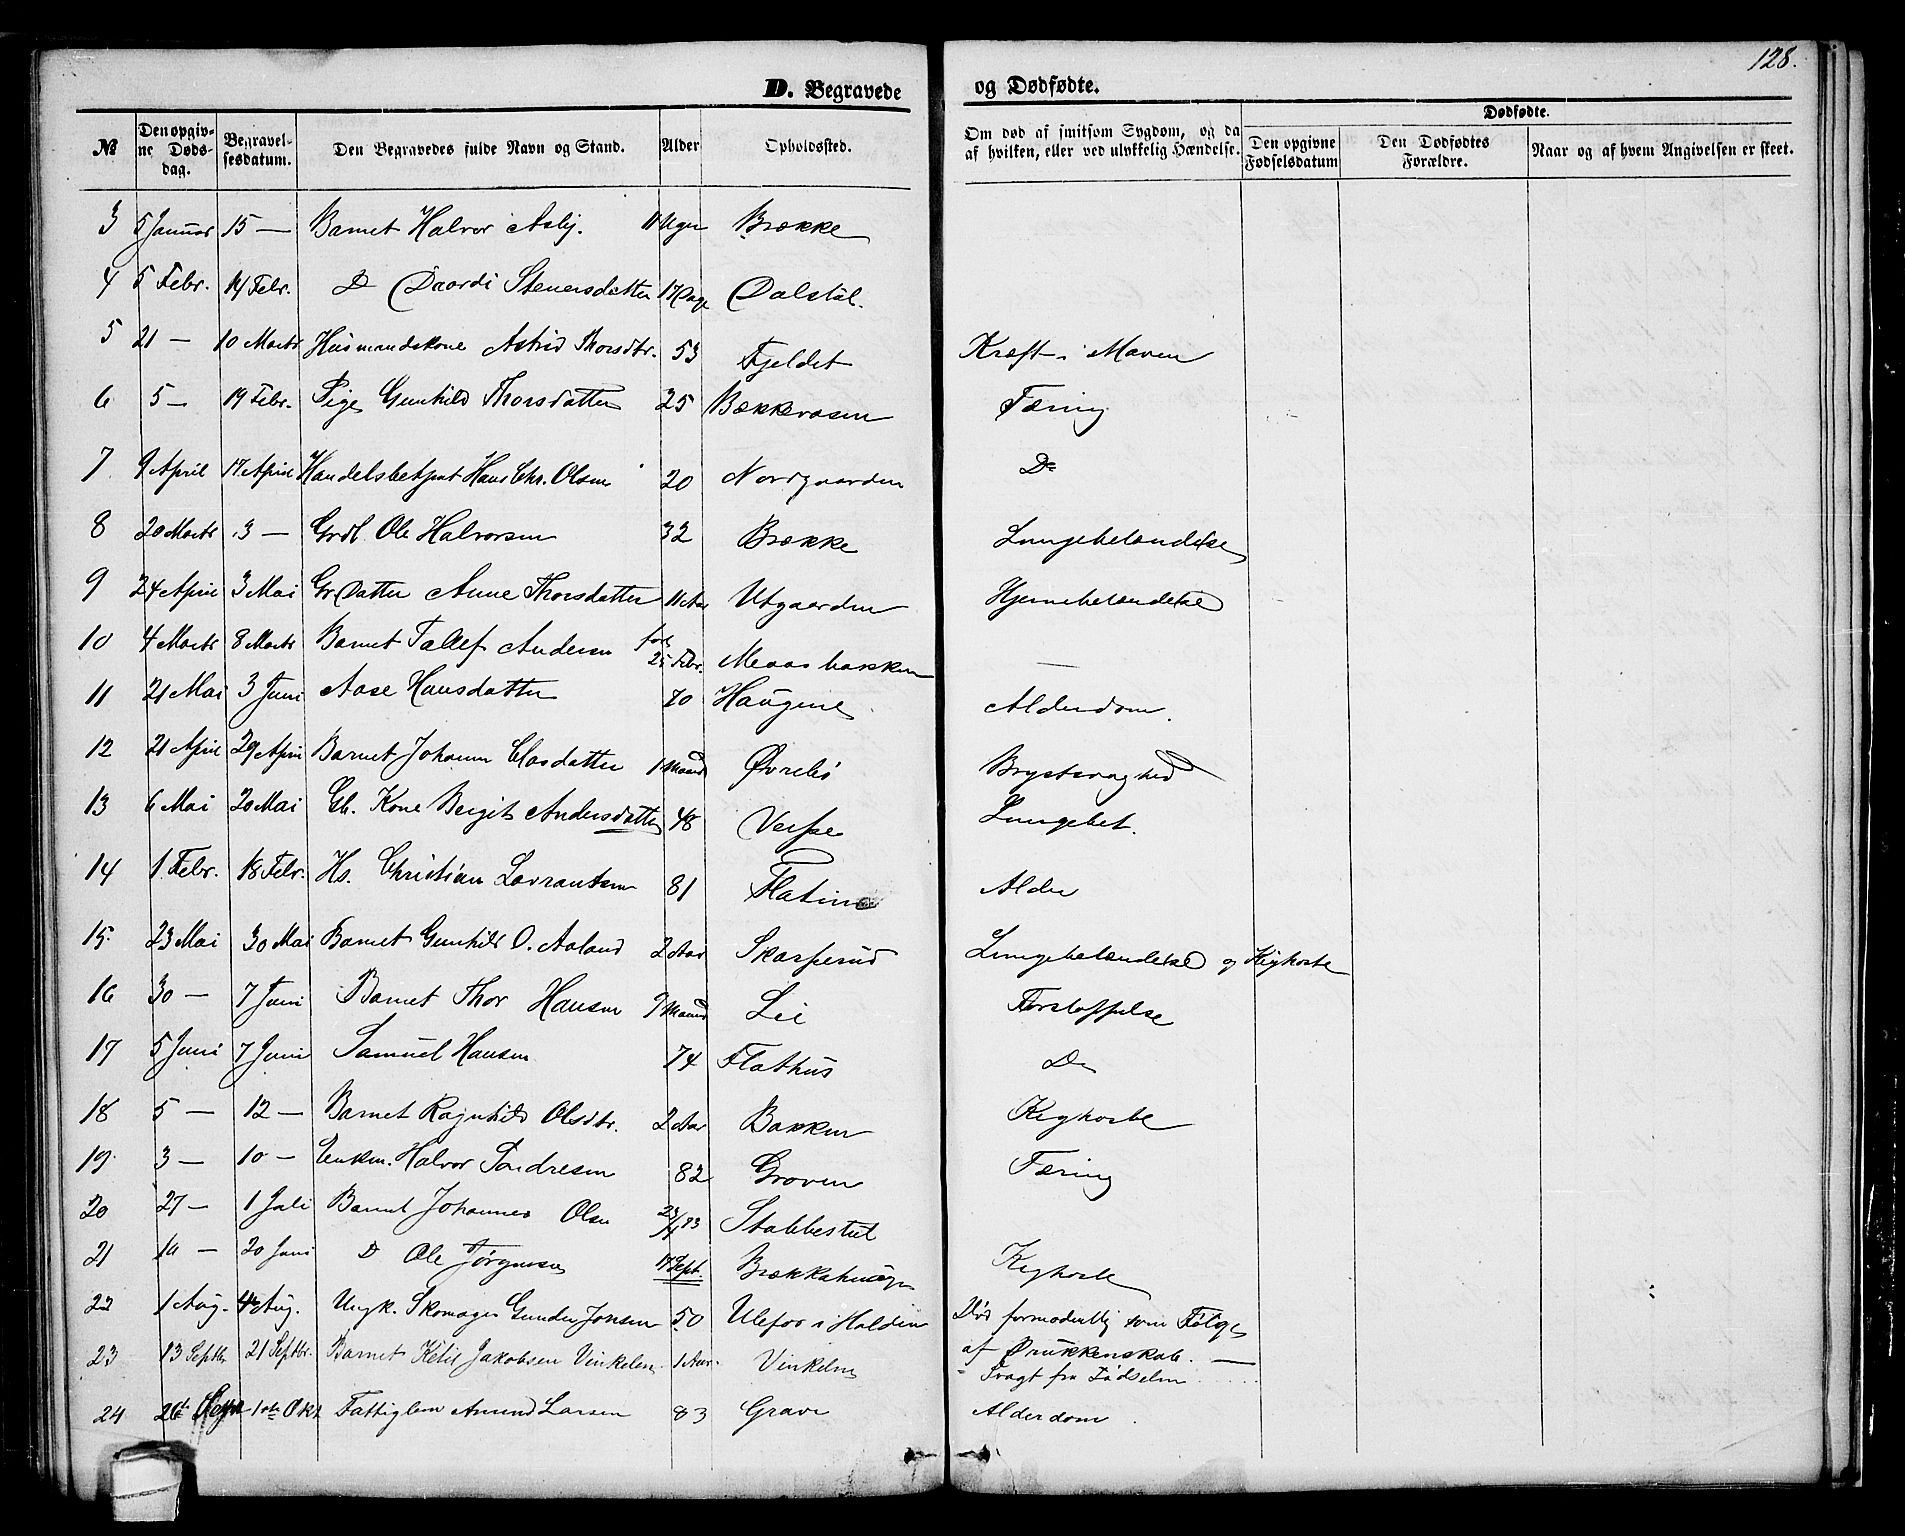 128.
D. Begravede og Dødfødte.
Dødfødte.
№ Den opgivne Dødsdag. Begravelsesdatum. Den Begravedes fulde Navn og Stand. Alder Opholdssted. Om død af smitsom Sygdom, og da af hvilken, eller ved ulykkelig Hændelse. Den opgivne Fødselsdatum Den Dødfødtes Forældre. Naar og af hvem Angivelsen er skeet.
3 5 Januar 15 — Barnet Halvor Asbj. 11 Uger Brække
4 5 Febr. 14 Febr. Do Steuersdatter 17 Dage Dalstöl.
5 21 — 10 Marts Husmandskone Astrid Thorsdtr. 53 Fjeldet Kræft i Maven
6 5 — 19 Febr. Pige Gunhild Thorsdatter 25 Bækkevasen Tæring
7 9 April 17 April Handelsbetjent Hans Chr. Olsen 20 Nordgaarden Do
8 20 Marts 3 — Grdl. Ole Halvorsen 32 Brække Lungebetændelse
9 24 April 3 Mai Gr Datter Anne Thorsdatter 11 Aar Utgaarden Hjernebetændelse
10 4 Marts 8 Marts Barnet Tallef Andersen 25 Febr. —
11 21 Mai 3 Juni Aase Hansdatter 70 Haugene Alderdom.
12 21 April 29 April Barnet Johanne Olasdatter 1 Maaned Øvrebö Brystsvaghed
13 6 Mai 20 Mai Gb. Kone Bergit Andersdatter 48 Versse Lungebet.
14 1. Febr. 18 Febr. Hs. Christian Lavrantsen 81 Flatin Alder
15. 23 Mai 30 Mai Barnet Gunhild O. Aaland 2 Aar Skarperud Lungebetændelse og Kighoste
16 30 — 7 Juni Barnet Thor Hansen 9 Maaned Lei Forstoppelse
17 5 Juni 7 Juni Samuel Hansen 74 Flathus Do
18 5 — 12 — Barnet Ragnhild Olsdtr. 2 Aar Bakken Kighoste
19. 3 — 10 — Enkm. Halvor Sondresen 82 Groven Tæring
20 27 — 1 Juli Barnet Johannes Olsen 23/4 83 Stabbestul
21 10 — 20 Juni D Ole Jørgensen 17 Sept. Brækkahaugen Kighoste
22 1 Aug. 4 Aug. Ungk. Skomager Gunder Jonsen 50 Ulefos i Holden Död formodentlig som Fölge
af Drukkenskab. —
23 13 Septbr 21 Septbr. Barnet Ketil Jakobsen Vinkelen 1 Aar. Vinkelen Svagt fra Födselen
24 26 Sept 1ste Okt Fattiglem Amund Larsen 83 Grave Alderdom.